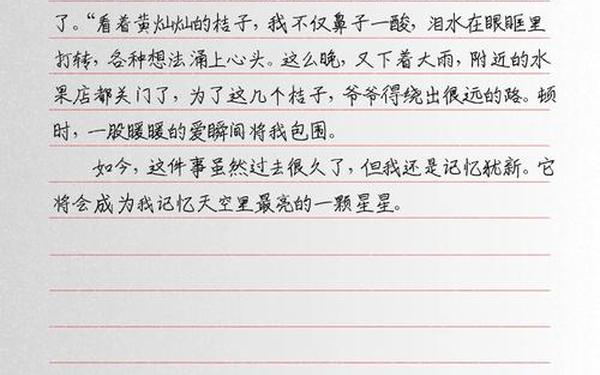 了。“看着黄灿灿的桔子，我不仅鼻子一酸，泪水在眼眶里
打转，各种想法涌上心头。这么晚，又下着大雨，附近的水
果店都关门了，为了这几个桔子，爷爷得绕出很远的路。顿
时，一股暖暖的爱瞬间将我包围。
如今，这件事虽然过去很久了，但我还是记忆犹新。它
将会成为我记忆天空里最亮的一颗星星。